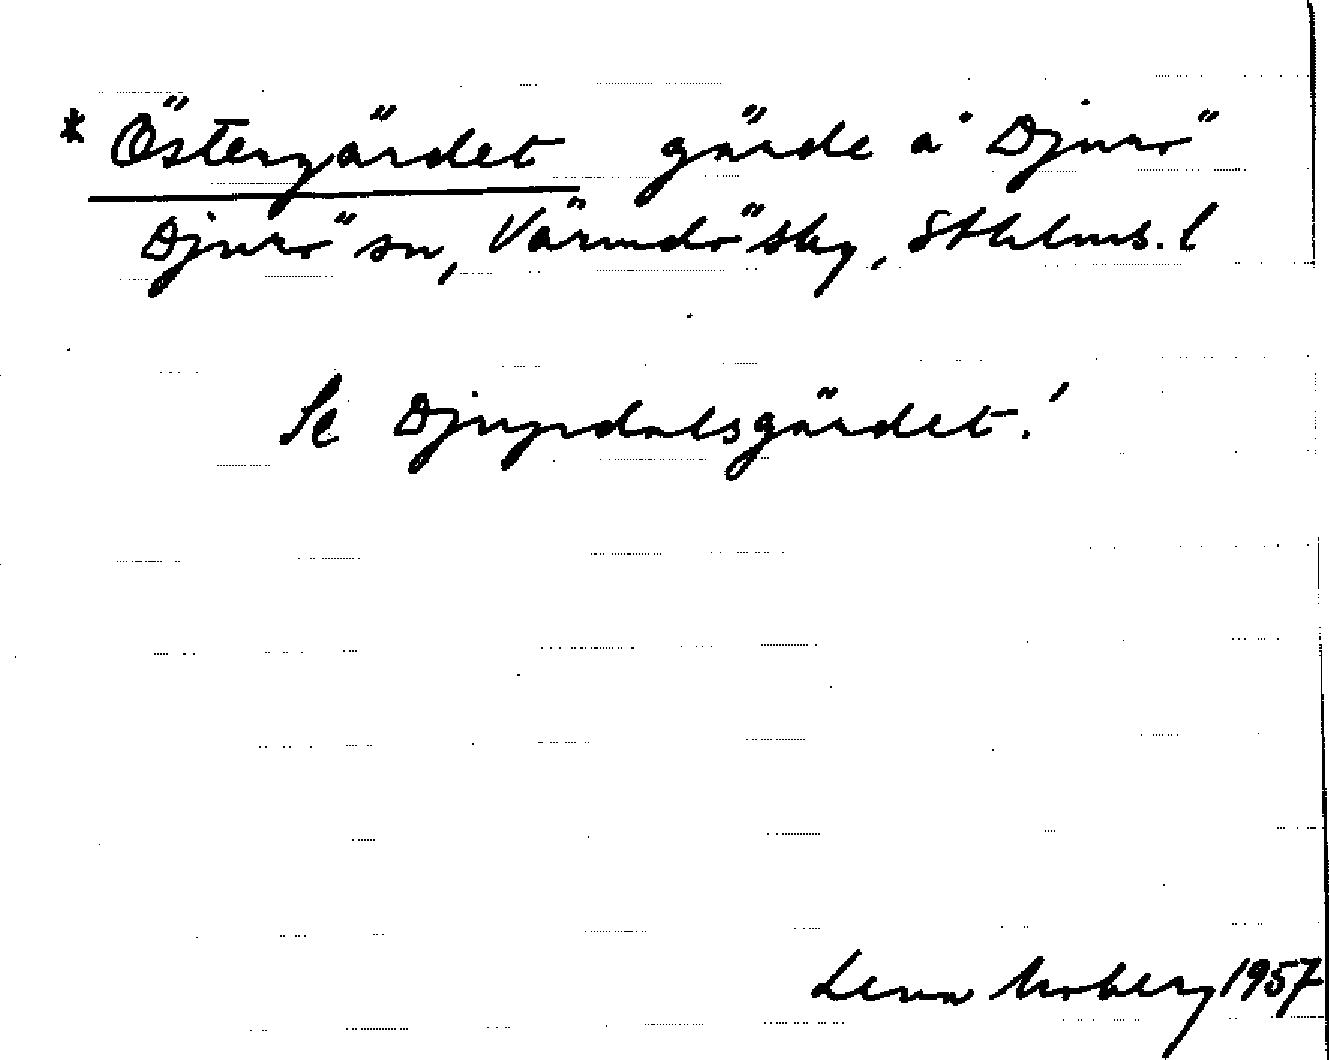 * Östergärdet gärde å Djurö
Djurö sn, Värmdö skg, Sthlms. l
Se Djupdalsgärdet!
Lena Moberg 1957